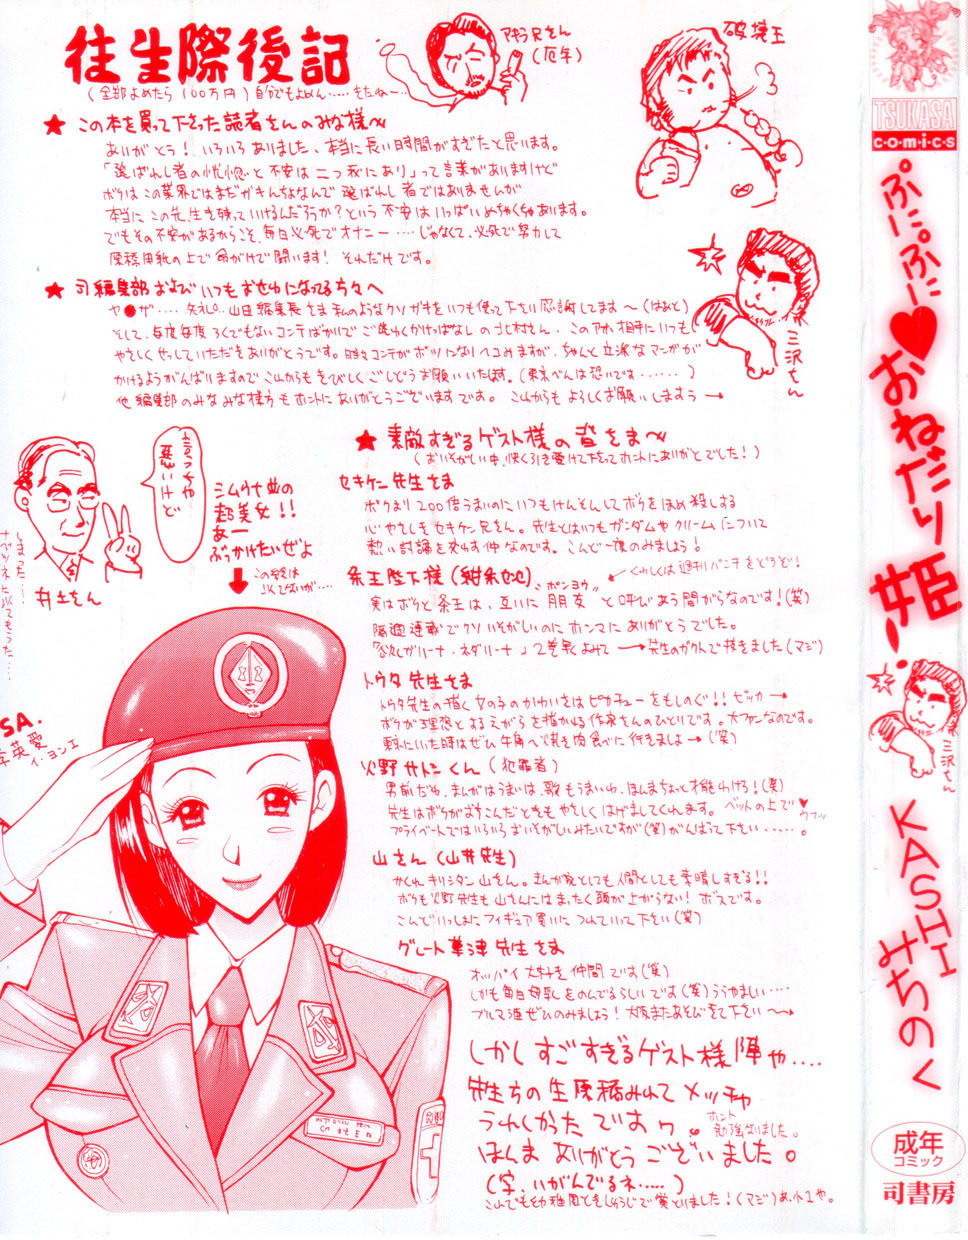 往生際後記
(全部よめたら100万円)自分でもよめん……きたねー…
アキラ兄さん
(厄年)
破壊王
★この本を買って下さった読者さんのみな様へ
ありがとう!いろいろありました、本当に長い時間がすぎたと思います。
「選ばれし者の恍惚と不安は二つ我にあり」って言葉がありますけど
ボクはこの業界ではまだガキんちょなんで選ばれし者ではありませんが
本当にこの先、生き残っていけるんだろうか?という不安はいっぱいめちゃくちゃあります。
でもその不安があるからこそ、毎日必死でオナニー……じゃなくて、必死で努力して
原稿用紙の上で命がけで闘います!それだけです。
★司編集部およびいつもおせわになってる方々へ
ヤ●ザ……失礼。山田編集長さま私のようなクソガキをいつも使って下さい感謝してます〜(はぁと)
そして、毎度毎度ろくでもないコンテばかりでご迷わくかけっぱなしの
やさしくせっしていただきありがとうです。時々コンテがボツになりヘコみますが、ちゃんと立派なマンガが
かけるようがんばりますのでこれからもきびしくごしどうお願いいたします。(東京べんは恐いです……)
他編集部のみなみな様方もホントにありがとうございますです。これからもよろしくお願いしますぅ→
三沢さん
★素敵すぎるゲスト様の皆さま〜
(おいそがしい中、快く引き受けて下さってホントにありがとでした!)
セキケン先生さま
ボクより200倍うまいのにいつもけんそんしてボクをほめ殺しする
心やさしきセキケン兄さん。先生とはいつもガンダムやクリームについて
熱い討論を交わす仲なのです。こんど一度のみましょう!
条王陛下様(紺条ゼセ)
くわしくは週刊パンチをどうぞ!
ポンヨウ
実はボクと条王は、互いに朋友と呼びあう間がらなのです!(笑)
隔週連載でクソいそがしいのにホンマにありがとうでした。
「欲しがリーナ・ネダリーナ」2巻早くよみてー→先生のガクトで抜きました(マジ)
トウタ先生さま
トウタ先生の描く女の子のかわいさはピカチューをもしのぐ!!ピッカー→
ボクが理想とよるえがらを描かれる作家さんのひとりです。大ファンなのです。
東京にいた時はぜひ牛角へ焼き肉食べに行きましょ→(笑)
火野サトシくん(犯罪者)
男前だわ、まんがはうまいは、歌もうまいわ、ほんまちょっと才能わけろ!(笑)
先生はボクがおちこんだときもやさしくはげましてくれます。ベットの上で♥
ウフッ
プライベートではいろいろおいそがしいみたいですが(笑)がんばって下さい……。
山さん(山井先生)
かくれキリシタン山さん。まんが家としても人間としても素晴しすぎる!!
ボクも火野先生も山さんにはまったく頭が上がらない!ボスです。
こんどいっしょにフィギュア買いにつれていって下さい(笑)
グレート草津先生さま
オッパイ大好き仲間です(笑)
しかも毎日母乳をのんでるらしいです(笑)うらやましい……
ブルマ酒ぜひのみましょう!大阪またあそびにきて下さい〜→
しかしすごすぎるゲスト様陣や….
先生方の生原稿みれてメッチャ
うれしかったですヮ。
ホント勉強なりました。
ほんまありがとうございました。
(字、いがんでるネ……)
こんでも幼稚園ときしゅうじで賞とりました!(マジ)あ、小1や。
言っちゃ
悪いけど
井上さん
シムウナ並の
超美女!!
あー
ぶっかけたいぜよ
この絵は
JKでないが….
しまった……
SA.
李英愛
イ・ヨンエ
TSUKASA
c·o·m·i·c·s
ぷにぷに♥おねだり姫!
三沢さん
KASHIみちのく
成年
コミック
司書房